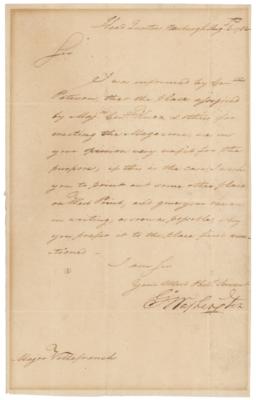 Head Quarters Newburgh Augt 1782
Sir
I was informed by Genl
Paterson, that the Place assigned
by Majr Genl Knox & others for
erecting the Magazine, is in
your opinion very unfit for the
purpose; if this is the case, I wish
you to point out some other place
on West Point, and give your reasons
in writing, as soon as possible, why
you prefer it to the place first men
tioned —
I am Sir
Your Most Obt Servant
Go Washington
Major Villefranche